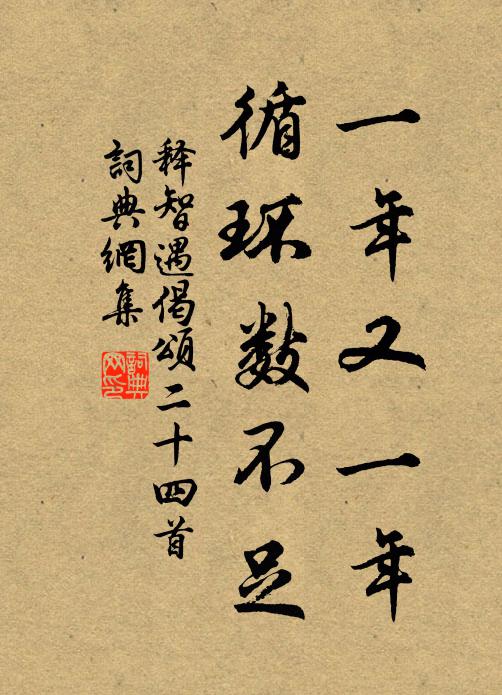 一年又一年
循环数不足
释智遇偈颂二十四首
詞典網集
詞典网印